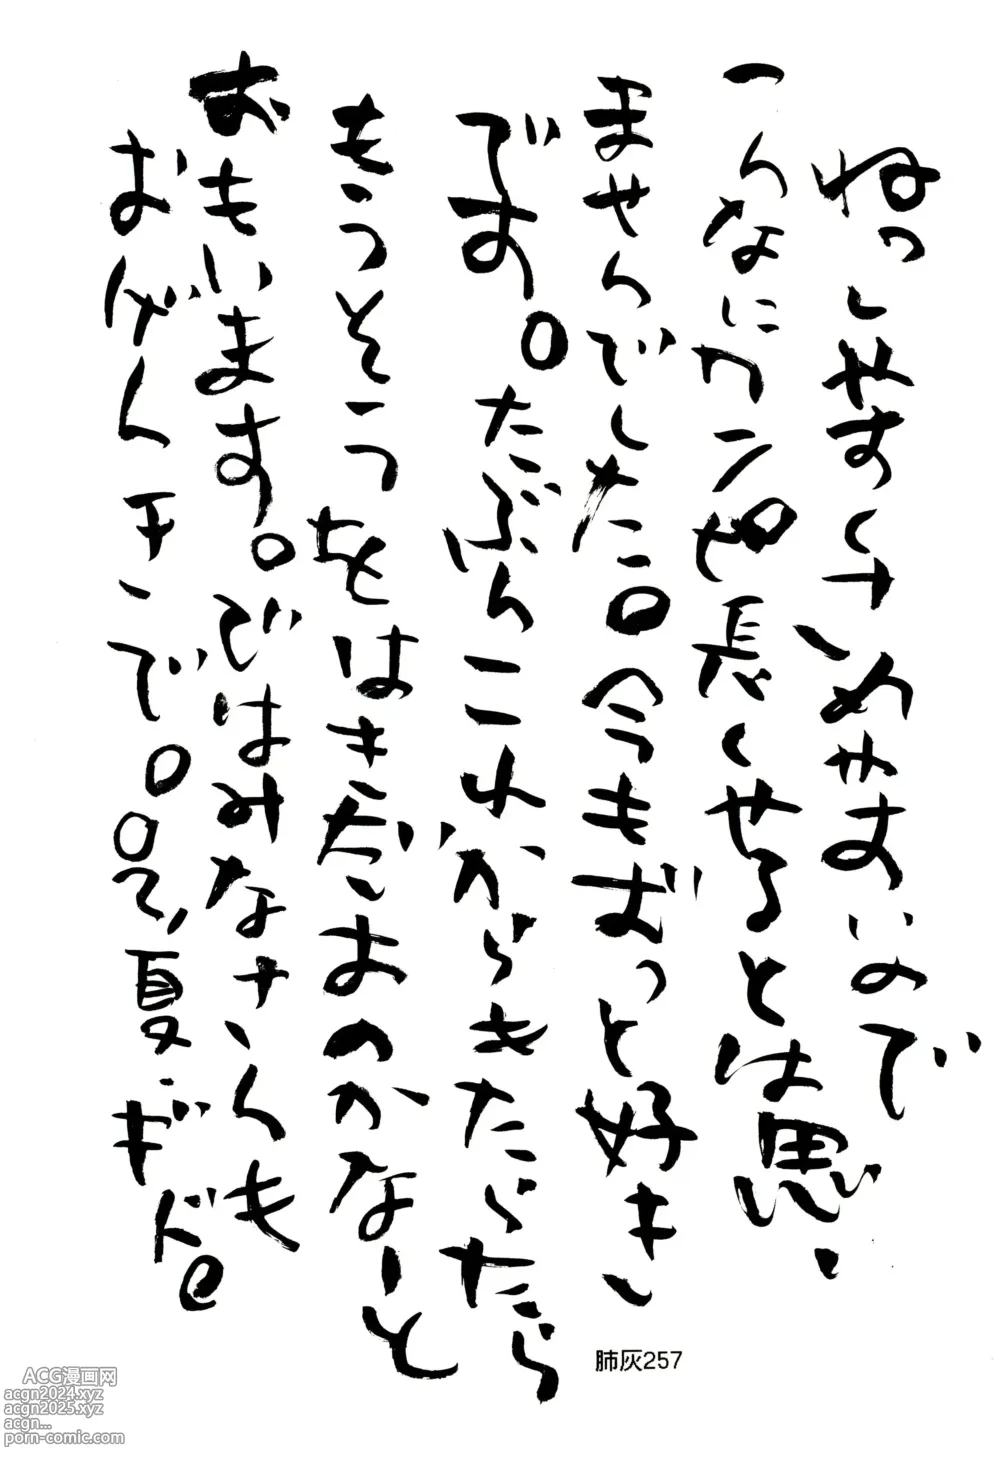 ねっしやすくさめやすいので
こんなにカンペ長くやるとは思い
ませんでした。今もずっと好き
です。たぶんこれからもだらだら
もうそうをはきだすのかなーと
おもいます。ではみなさんも
おげんきで。。で、夏・ギド。
肺灰257
ACG漫画网
acgn2024.xyz
acgn2025.xyz
acgn...
porn-comic.com